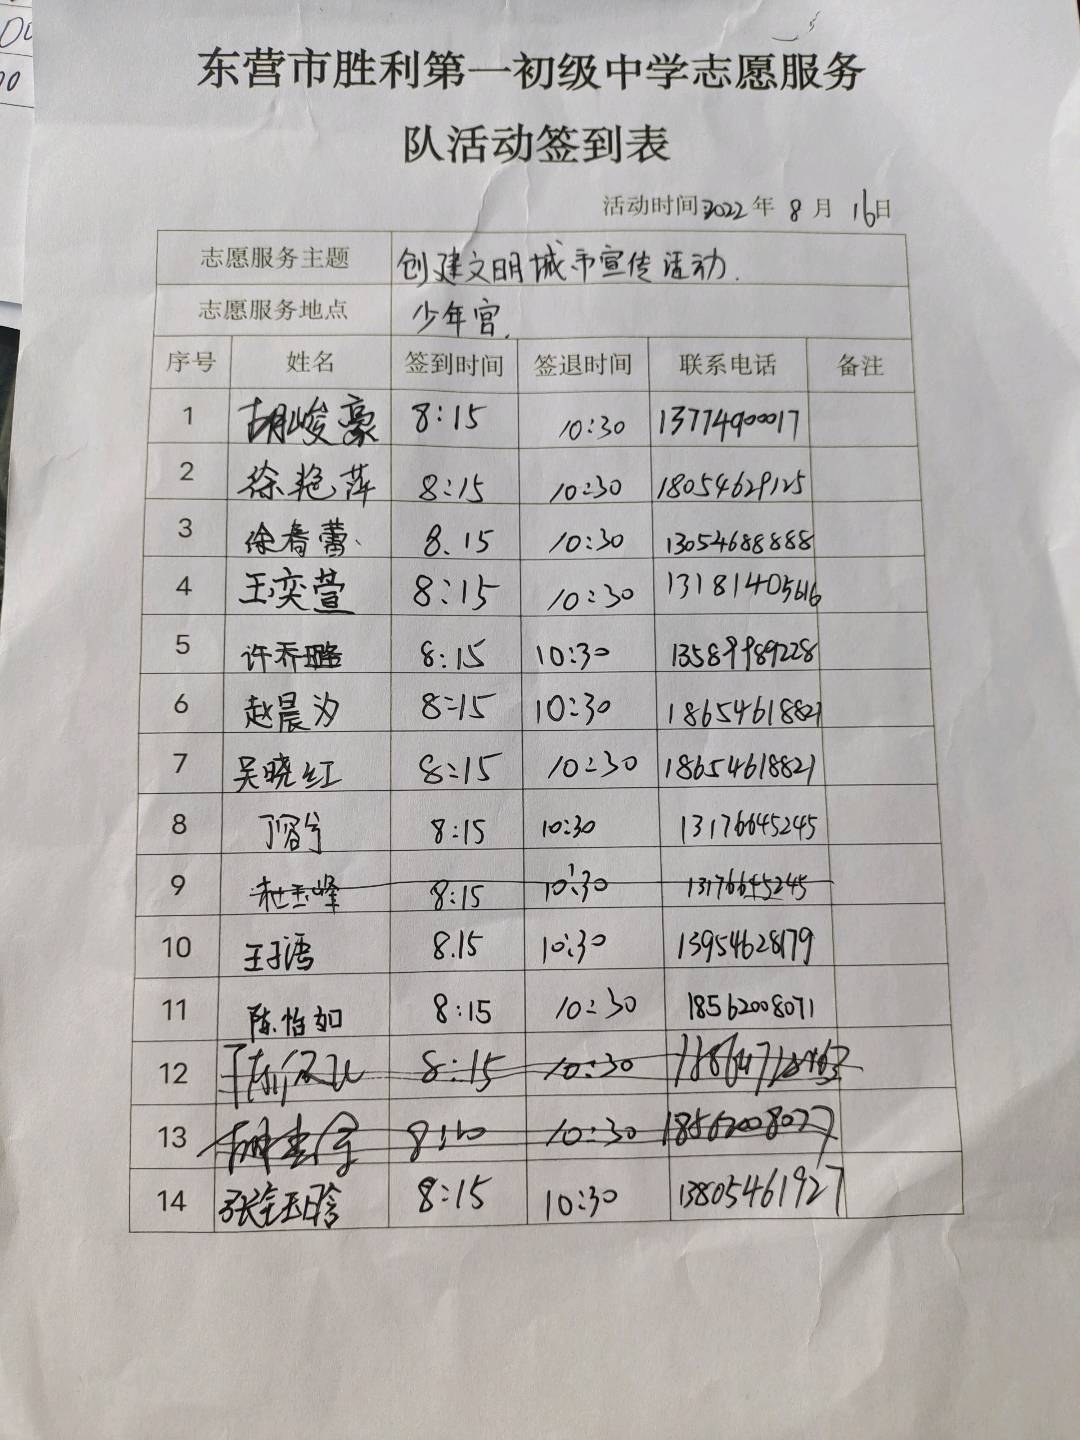 东营市胜利第一初级中学志愿服务
队活动签到表
活动时间2022年 8月 16日
志愿服务主题 创建文明城市宣传活动.
志愿服务地点 少年宫.
序号 姓名 签到时间 签退时间 联系电话 备注
1 胡峻豪 8:15 10:30 13774900017
2 徐艳萍 8:15 10:30 18054629125
3 徐春蕾 8.15 10:30 13054688888
4 王奕萱 8:15 10:30 13181405616
5 许乔璐 8:15 10:30 13589989228
6 赵晨汐 8:15 10:30 18654618821
7 吴晓红 8:15 10:30 18654618821
8 8:15 10:30 13176645245
9 杜玉峰 8:15 10:30 13176645245
10 8.15 10:30 13954628179
11 陈怡如 8:15 10:30 18562008071
12 8:15 10:30
13 10:30 18562008027
14 8:15 10:30 13805461927